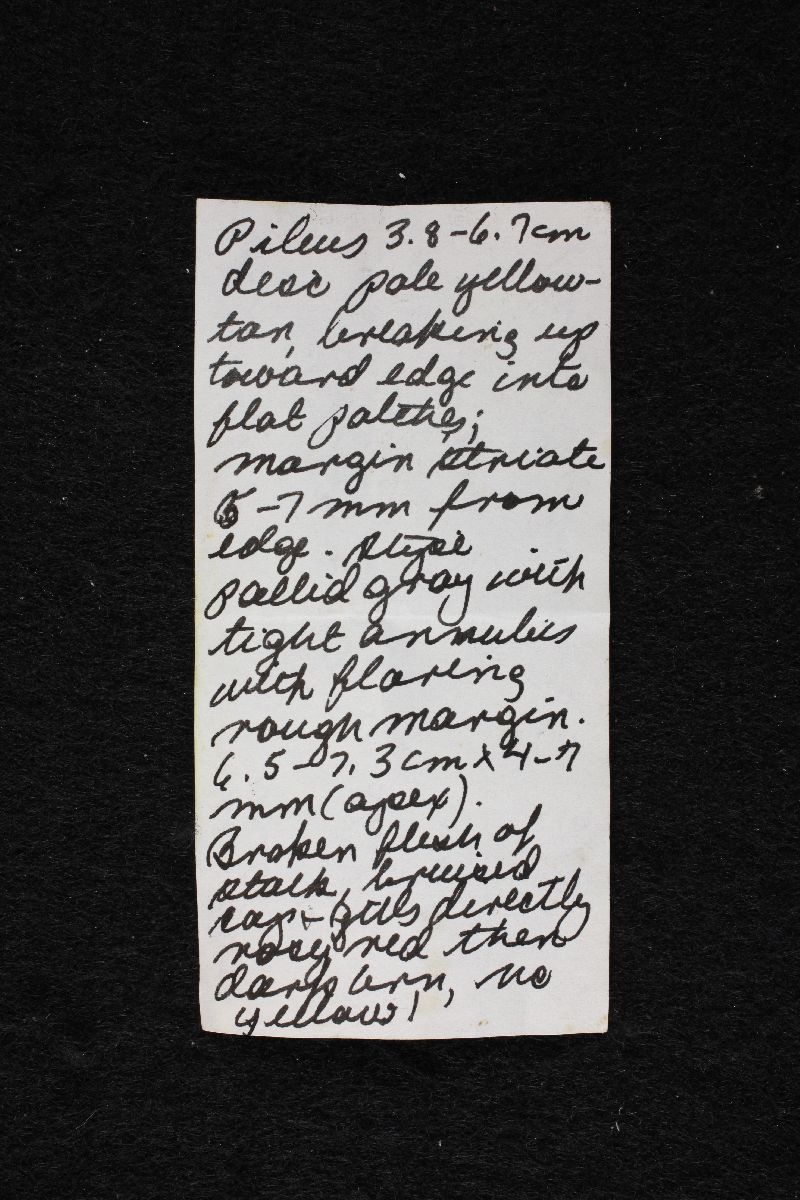 Pileus 3.8-6.7cm
disc pale yellow-
tan, breaking up
toward edge into
flat patches;
margin striate
5-7 mm from
edge. Stipe
pallid gray with
tight annulus
with flaring
rough margin.
6.5-7.3cm x 4-7
mm (apex).
Broken flesh of
stalk, bruised
cap + gills directly
rosy red then
dark brn, no
yellow!